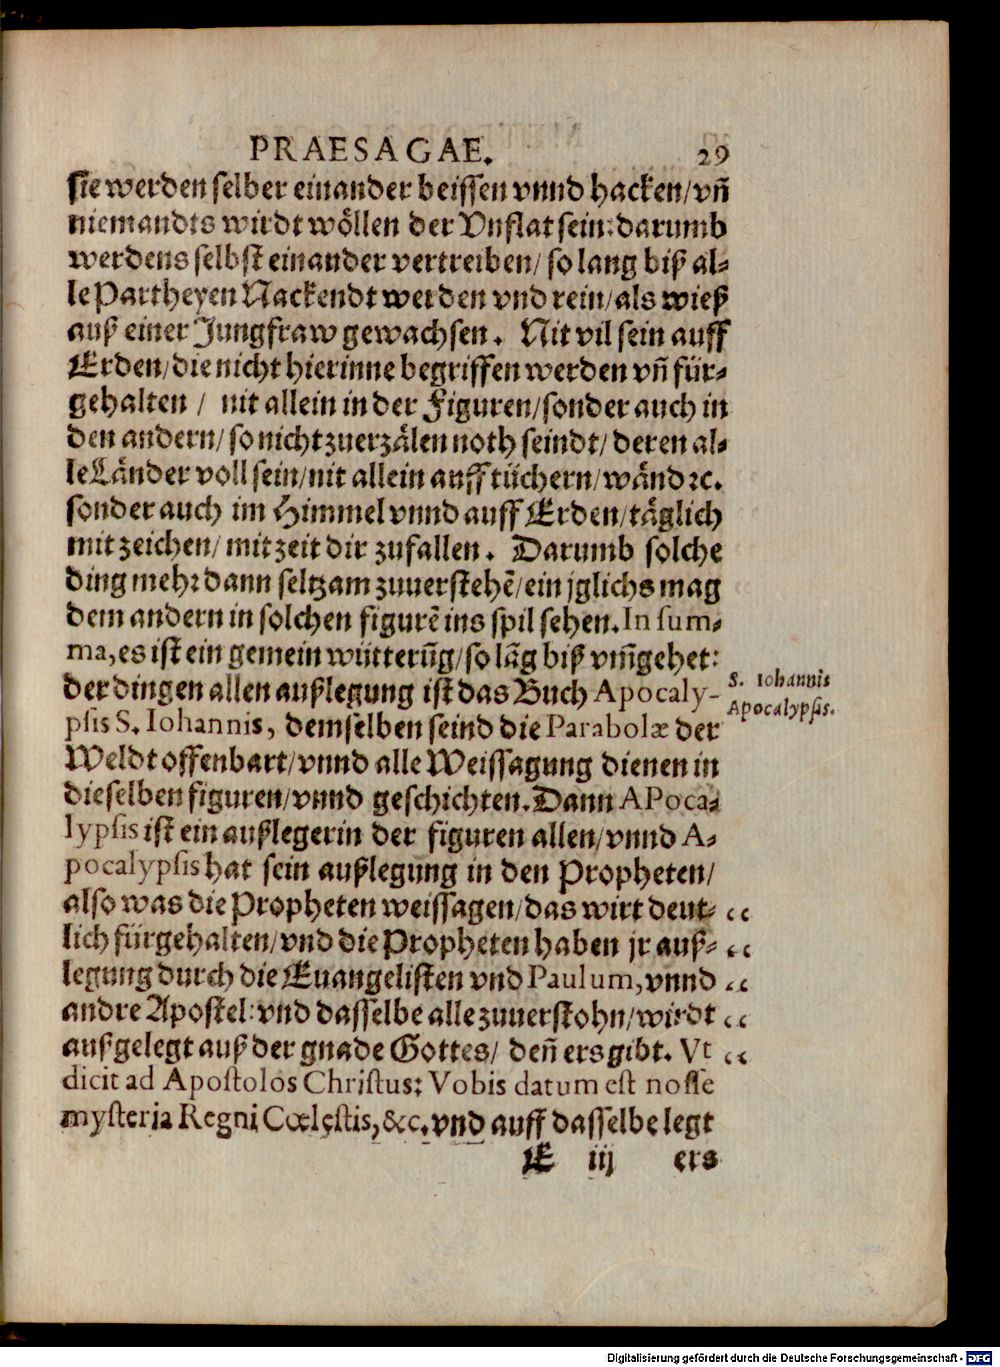 PRAESAGAE. 29
sie werden selber einander beissen vnnd hacken/vñ
niemandts wirdt wöllen der Vnflat sein: darumb
werdens selbst einander vertreiben/ so lang biß al-
le Partheyen Nackendt werden vnd rein/als wieß
auß einer Jungfraw gewachsen. Nit vil sein auff
Erden/die nicht hierinne begriffen werden vñ für-
gehalten / nit allein in der Figuren/sonder auch in
den andern/so nicht zuerzälen noth seindt/ deren al-
le Länder voll sein/nit allein auff tüchern/wänd ꝛc.
sonder auch im Himmel vnnd auff Erden/täglich
mit zeichen/ mit zeit dir zufallen. Darumb solche
ding mehr dann seltzam zuuerstehẽ/ein jglichs mag
dem andern in solchen figurẽ ins spil sehen. In sum-
ma, es ist ein gemein wütterũg/so lãg biß vmm̃gehet:
der dingen allen außlegung ist das Buch Apocaly-
psis S. Iohannis, demselben seind die Parabolæ der
Weldt offenbart/vnnd alle Weissagung dienen in
dieselben figuren/vnnd geschichten. Dann APoca-
lypsis ist ein außlegerin der figuren allen/vnnd A-
pocalypsis hat sein außlegung in den Propheten/
also was die Propheten weissagen/das wirt deut-
lich fürgehalten/vnd die Propheten haben jr auß-
legung durch die Euangelisten vnd Paulum, vnnd
andre Apostel: vnd dasselbe alle zuuerstohn/wirdt
außgelegt auß der gnade Gottes/ deñ ers gibt. Vt
dicit ad Apostolos Christus: Vobis datum est nosse
mysteria Regni Cœlęstis, &c. vnd auff dasselbe legt
E iij ers
S. Iohannis
Apocalypsis.
Digitalisierung gefördert durch die Deutsche Forschungsgemeinschaft - DFG